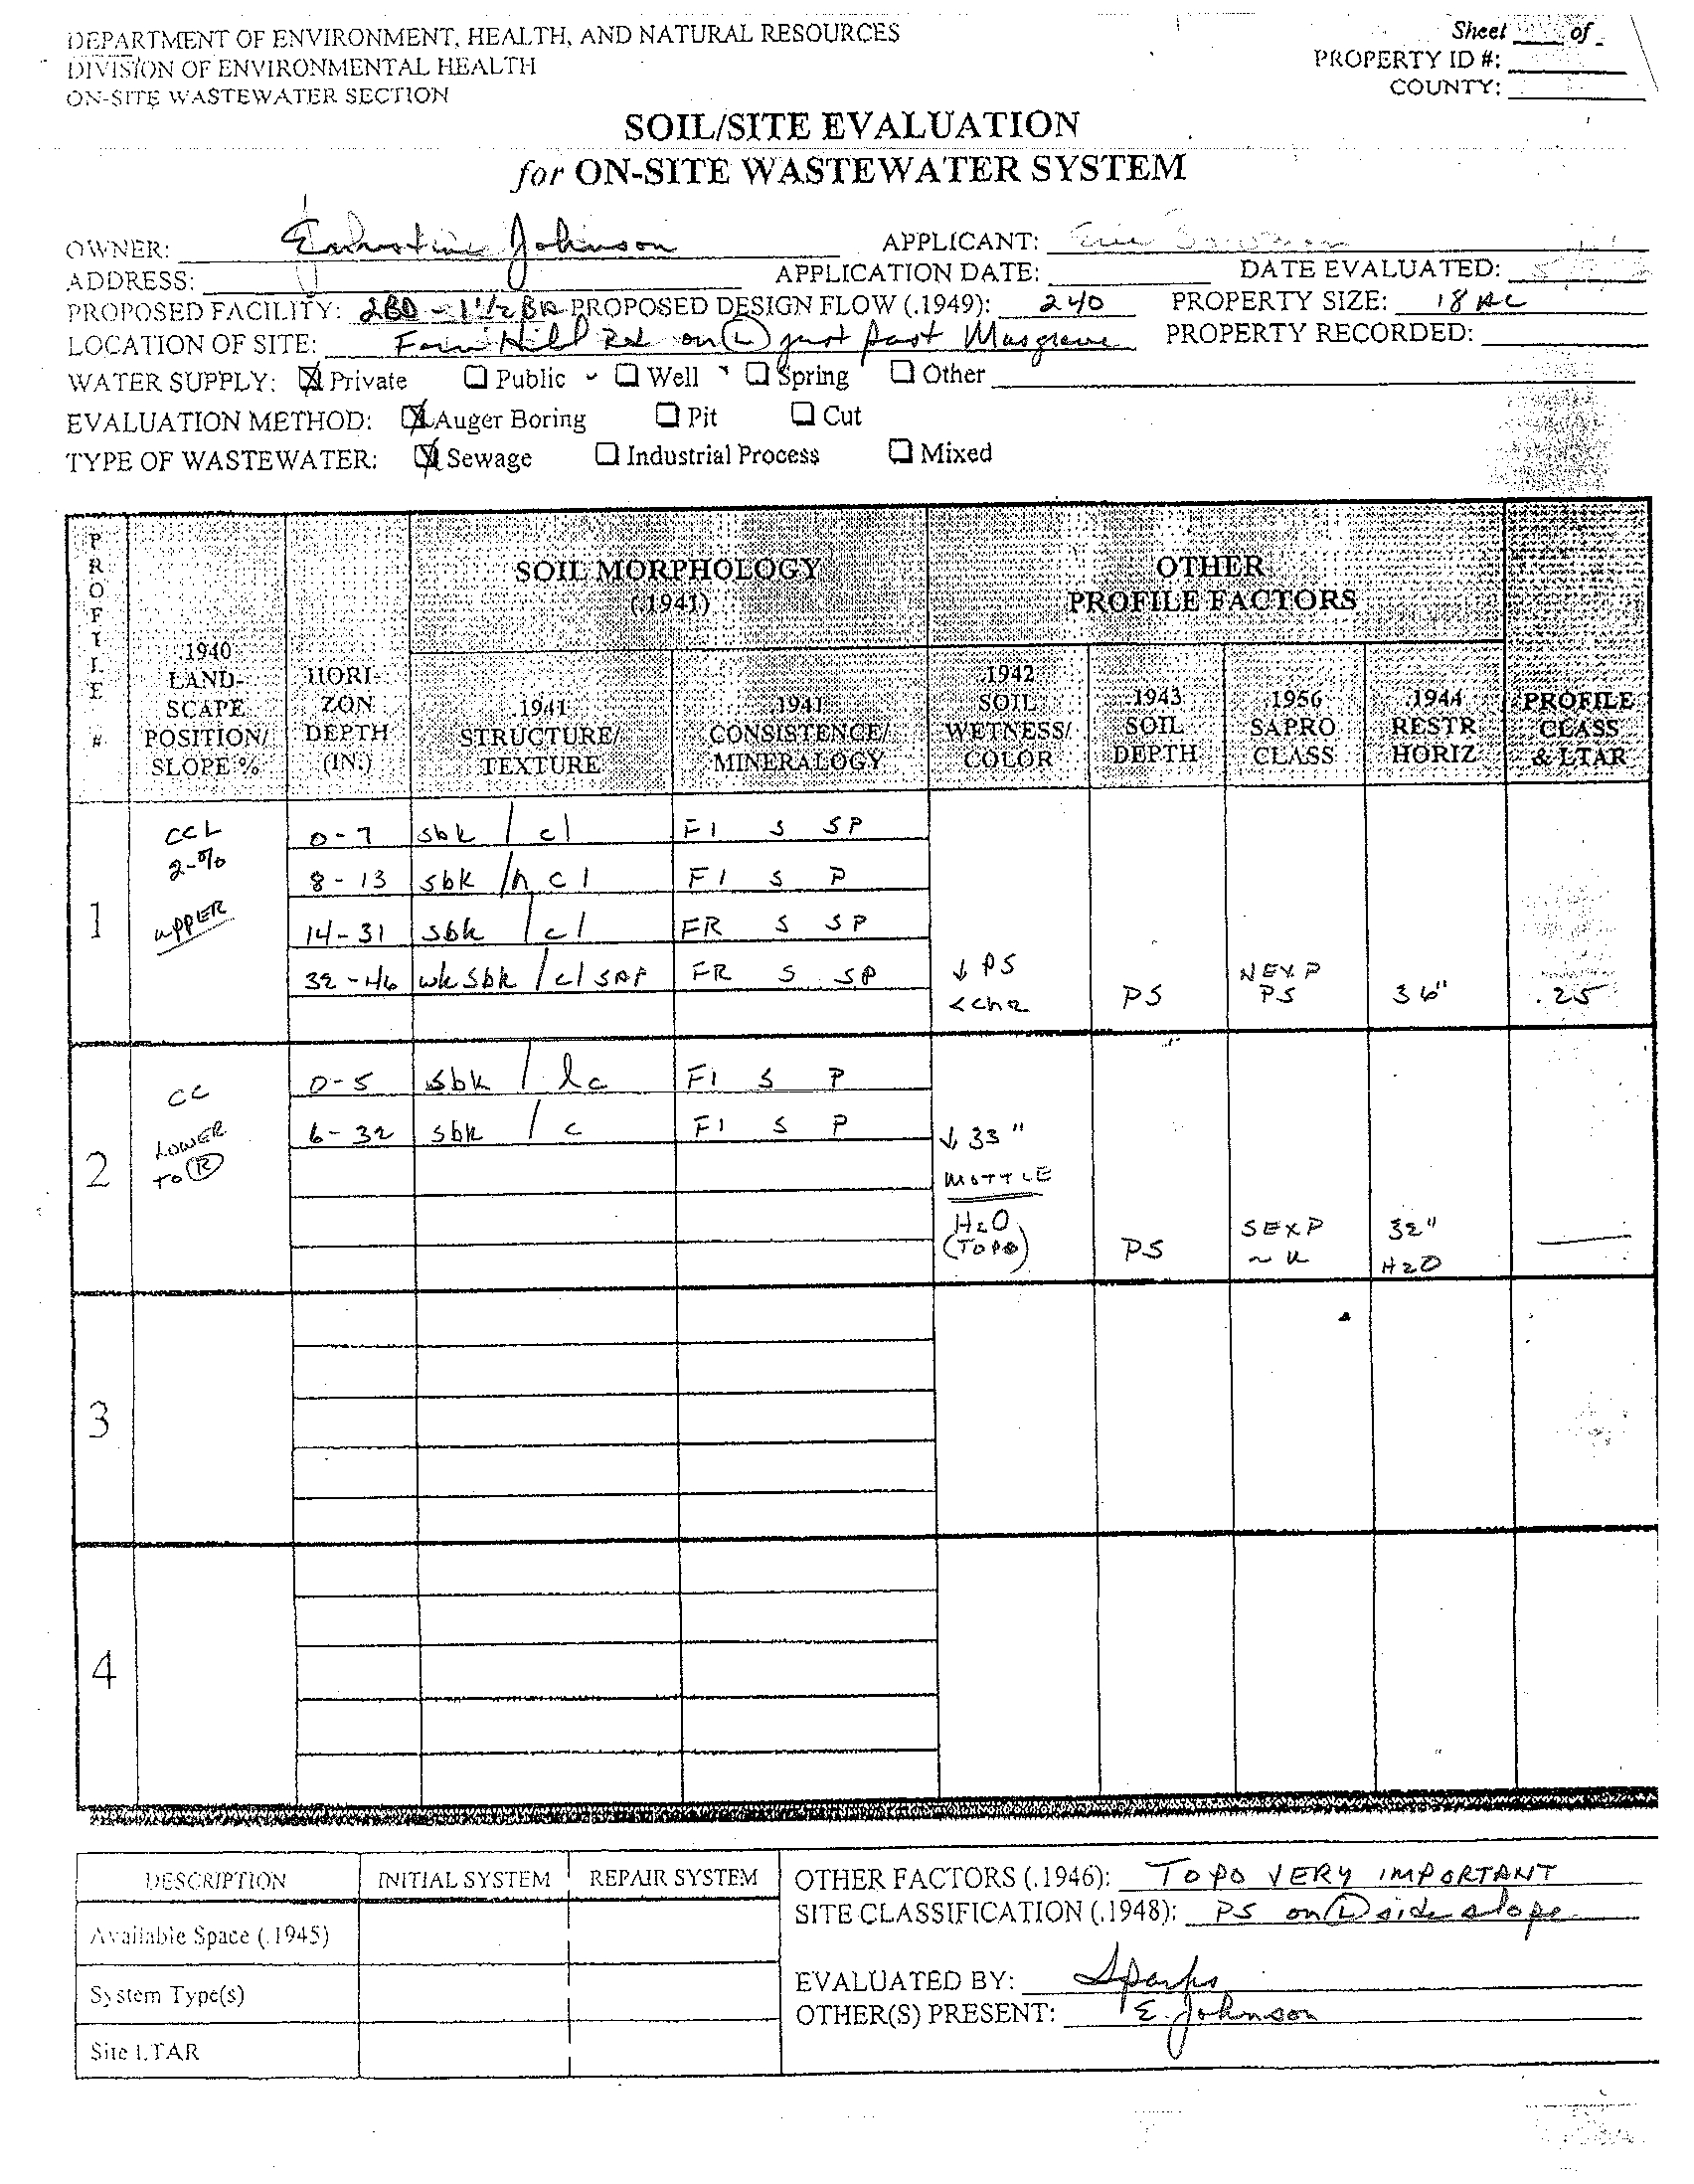 DEPARTMENT OF ENVIRONMENT, HEALTH, AND NATURAL RESOURCES
DIVISION OF ENVIRONMENTAL HEALTH
ON-SITE WASTEWATER SECTION
Sheet ___ of _
PROPERTY ID #:
COUNTY:
SOIL/SITE EVALUATION
for ON-SITE WASTEWATER SYSTEM
OWNER: Johnson APPLICANT: Eric
ADDRESS: APPLICATION DATE: DATE EVALUATED:
PROPOSED FACILITY: 2BD - 1 1/2 BA PROPOSED DESIGN FLOW (.1949): 240 PROPERTY SIZE: 18 AC
LOCATION OF SITE: Hill Rd on (L) just past Musgrave PROPERTY RECORDED:
WATER SUPPLY: ☒ Private ☐ Public ☐ Well ☐ Spring ☐ Other
EVALUATION METHOD: ☒ Auger Boring ☐ Pit ☐ Cut
TYPE OF WASTEWATER: ☒ Sewage ☐ Industrial Process ☐ Mixed
PROFILE #
.1940 LAND-SCAPE POSITION/ SLOPE %
HORI-ZON DEPTH (IN.)
SOIL MORPHOLOGY (.1941)
.1941 STRUCTURE/ TEXTURE
.1941 CONSISTENCE/ MINERALOGY
OTHER PROFILE FACTORS
.1942 SOIL WETNESS/ COLOR
.1943 SOIL DEPTH
.1956 SAPRO CLASS
.1944 RESTR HORIZ
PROFILE CLASS & LTAR
1
CCL
2-%
UPPER
0-7 sbk / cl FI S SP
8-13 sbk / cl FI S P
14-31 sbk / cl FR S SP
32-46 wk sbk / cl SAP FR S SP
↓ PS
<chr2 PS NEXP PS 36" .25
2
CC
LOWER
TO (R)
0-5 sbk / lc FI S P
6-32 sbk / c FI S P
↓ 33"
MOTTLE
H2O
(TOPO) PS SEXP ~ U 32" H2O
3
4
DESCRIPTION INITIAL SYSTEM REPAIR SYSTEM
Available Space (.1945)
System Type(s)
Site LTAR
OTHER FACTORS (.1946): TOPO VERY IMPORTANT
SITE CLASSIFICATION (.1948): PS on (L) side slope
EVALUATED BY: Sparks
OTHER(S) PRESENT: E. Johnson